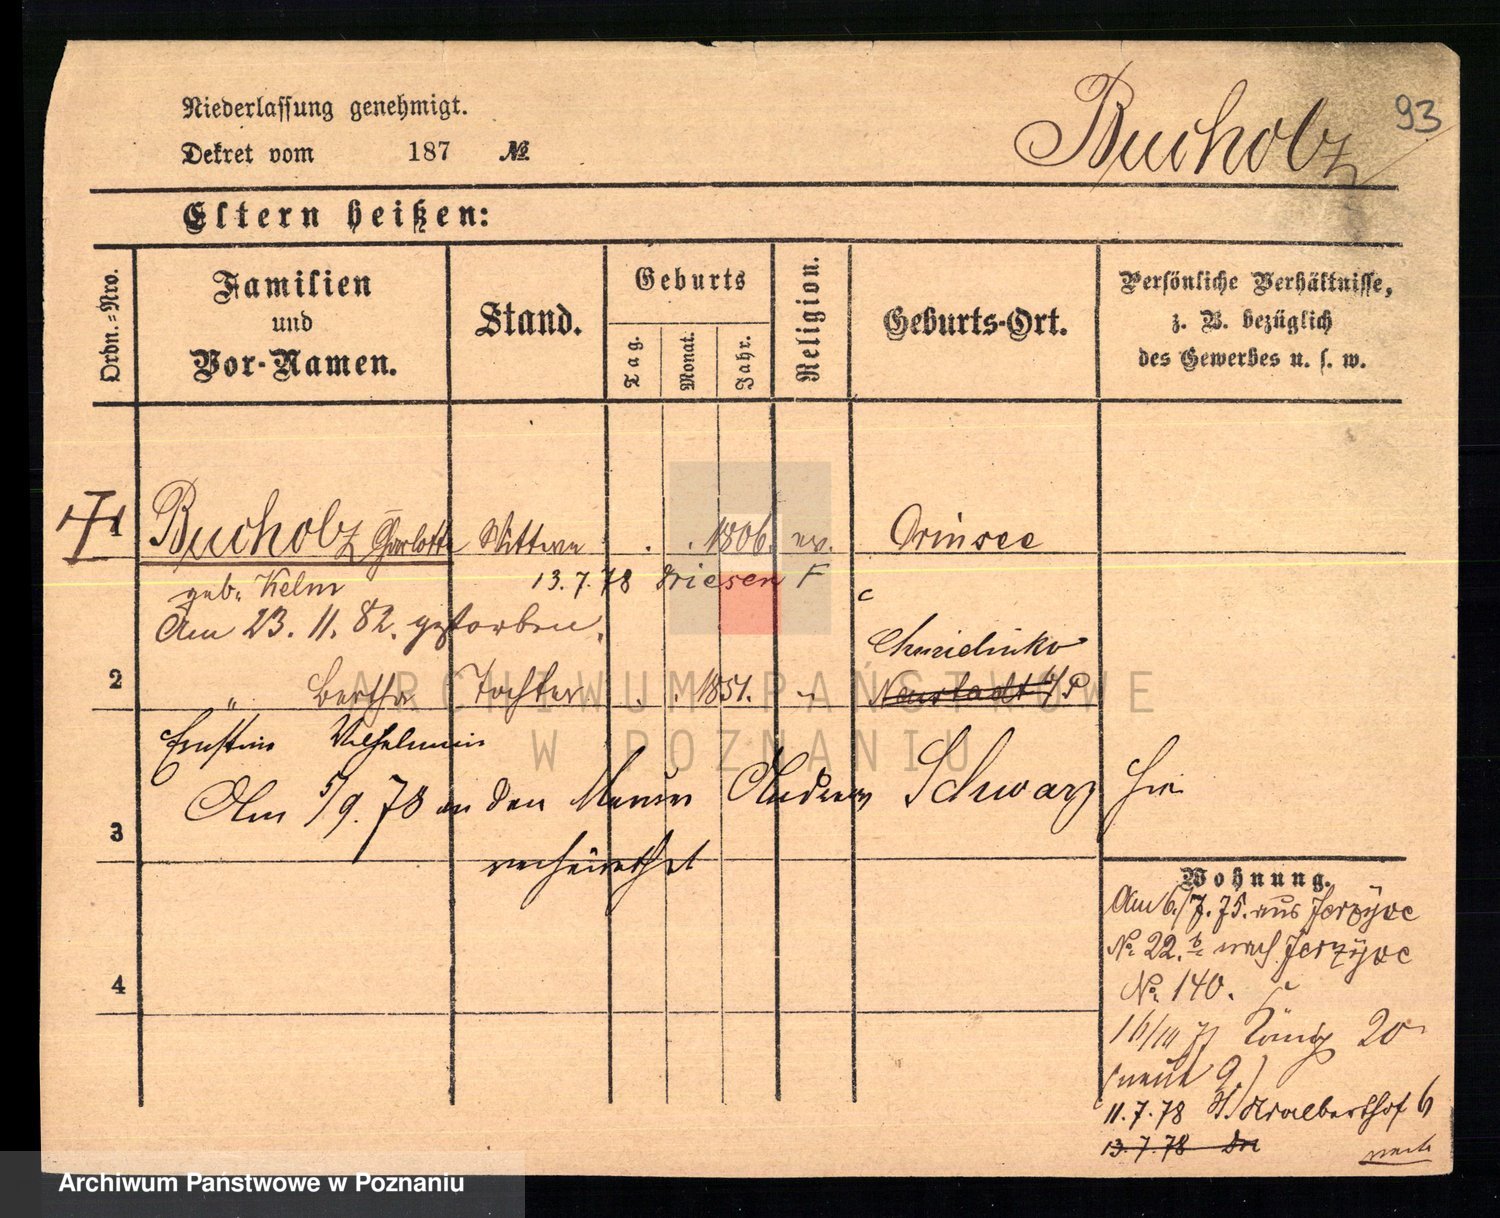 Niederlassung genehmigt.
Dekret vom 187 №
Bucholz
93
Eltern heißen:
Ordn.-Nro.
Familien
und
Vor-Namen.
Stand.
Geburts
Tag.
Monat.
Jahr.
Religion.
Geburts-Ort.
Persönliche Verhältnisse,
z. B. bezüglich
des Gewerbes u. s. w.
1 Bucholz Charlotte Wittwe . . 1806. ev. Orinsee
geb. Kelm 13.7.78 Driesen F
Am 23. 11. 82. gestorben.
Chmielinko
2 " Bertha Tochter . . 1851. " Neustadt
Ernstine Wilhelmine
Am 5/9. 78 an den Maurer Andreas Schwarz hie
3
verheirathet
4
Wohnung.
Am 6./7. 75. aus Jerzyce
№ 22. b nach Jerzyce
№ 140.
König 20
(neue 9.)
11.7.78 St. Adalberthof 6
13.7.78
ARCHIWUM PAŃSTWOWE
W POZNANIU
Archiwum Państwowe w Poznaniu